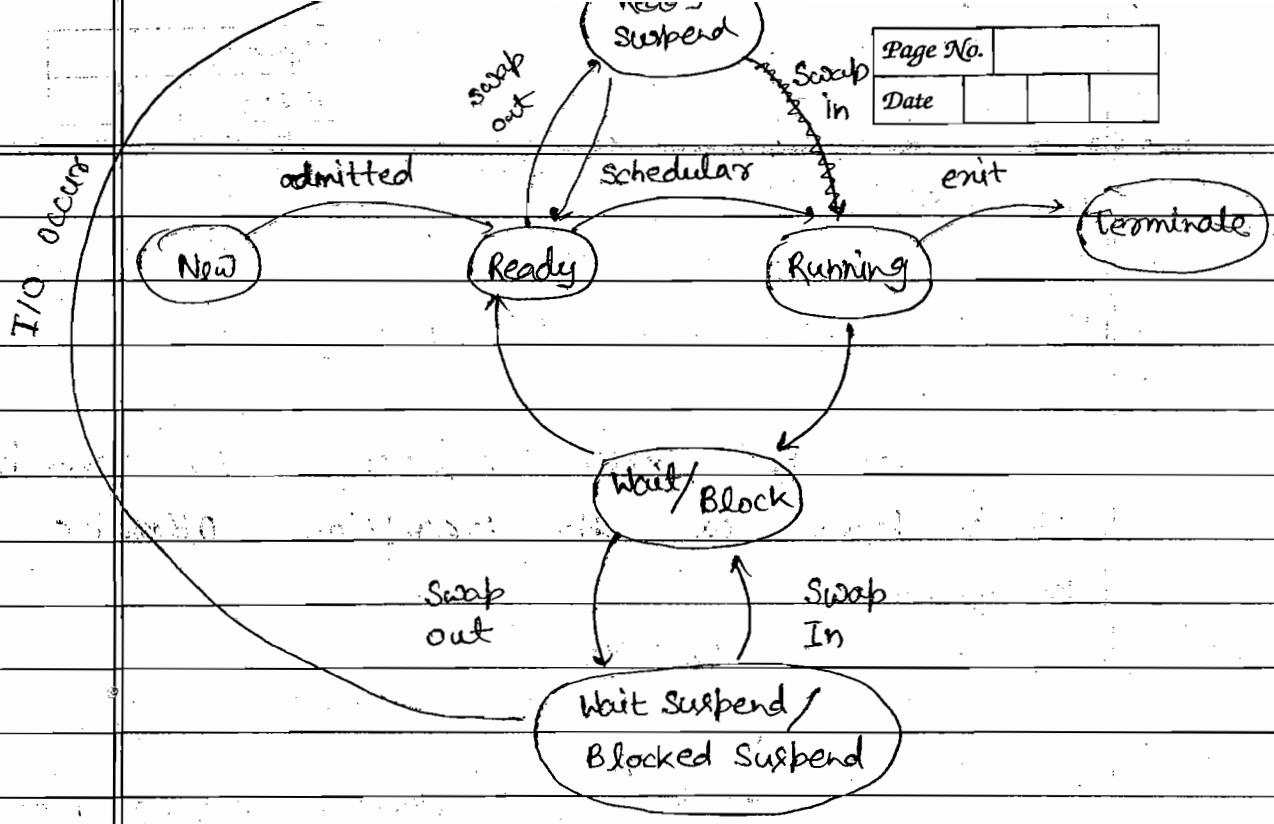 Suspend
Page No.
Date
Swap
out
Swap
in
I/O occur
admitted
Schedular
exit
New
Ready
Running
Terminate
Wait/Block
Swap
out
Swap
In
Wait Suspend/
Blocked Suspend